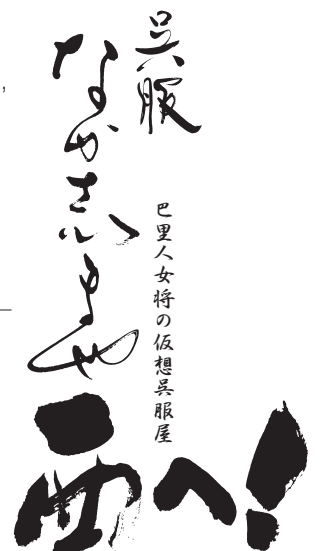 呉服
なか志まや
巴里人女将の仮想呉服屋
西へ!